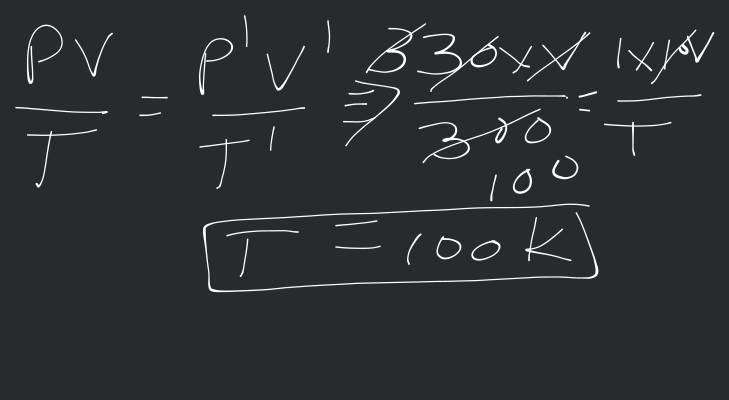 PV/T = P'V'/T' ⇒ 330xV/300 = 1x10V/T
100
T = 100K